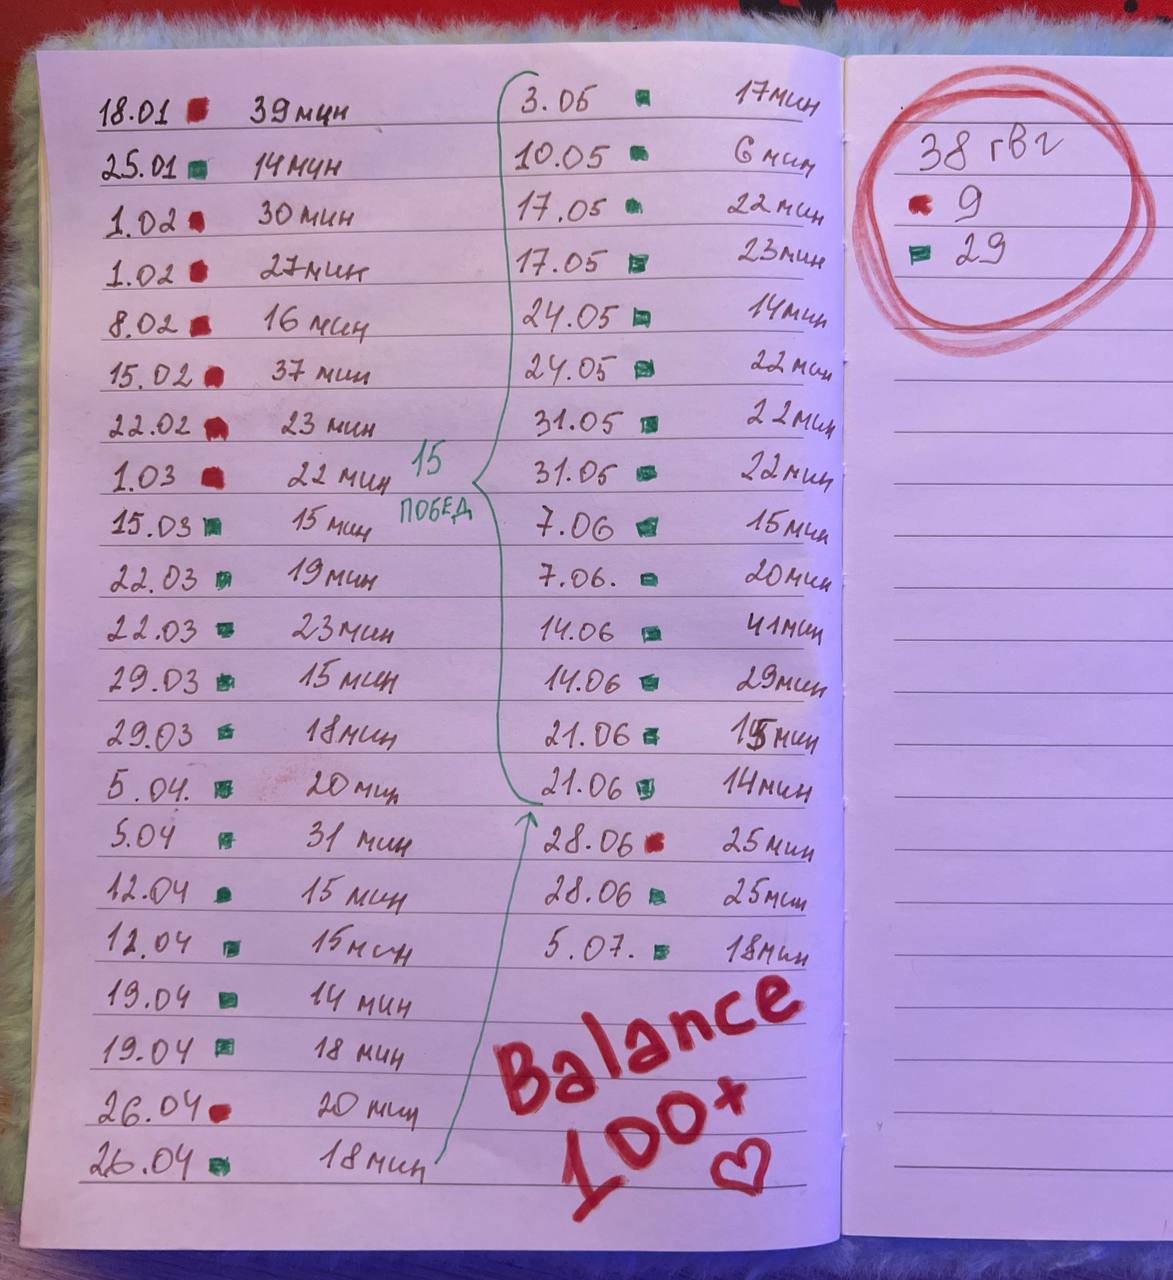 18.01 39 мин
25.01 14 мин
1.02 30 мин
1.02 27 мин
8.02 16 мин
15.02 37 мин
22.02 23 мин
1.03 22 мин
15.03 15 мин
22.03 19 мин
22.03 23 мин
29.03 15 мин
29.03 18 мин
5.04. 20 мин
5.04 31 мин
12.04 15 мин
12.04 15 мин
19.04 14 мин
19.04 18 мин
26.04 20 мин
26.04 18 мин
15
ПОБЕД
3.05 17 мин
10.05 6 мин
17.05 22 мин
17.05 23 мин
24.05 14 мин
24.05 22 мин
31.05 22 мин
31.05 22 мин
7.06 15 мин
7.06. 20 мин
14.06 41 мин
14.06 29 мин
21.06 15 мин
21.06 14 мин
28.06 25 мин
28.06 25 мин
5.07. 18 мин
Balance
100+
38 гвг
9
29